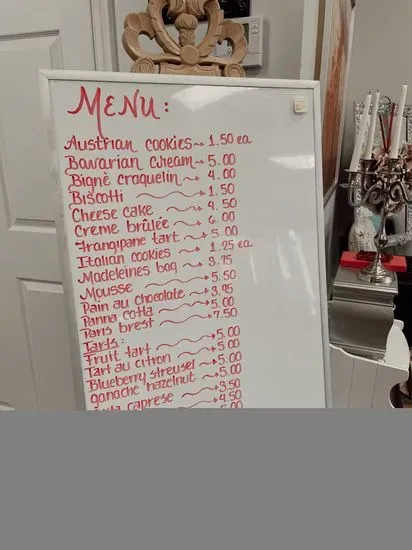 MENU:
Austrian cookies → 1.50 ea
Bavarian cream → 5.00
Bignè craquelin → 4.00
Biscotti → 1.50
Cheese cake → 4.50
Creme brûlée → 6.00
Frangipane tart → 5.00
Italian cookies → 1.25 ea
Madeleines bag → 3.75
Mousse → 5.50
Pain au chocolate → 3.95
Panna cotta → 5.00
Paris brest → 7.50
Tarts:
Fruit tart → 5.00
Tart au citron → 5.00
Blueberry streusel → 5.00
ganache hazelnut → 5.00
caprese → 3.50
4.50